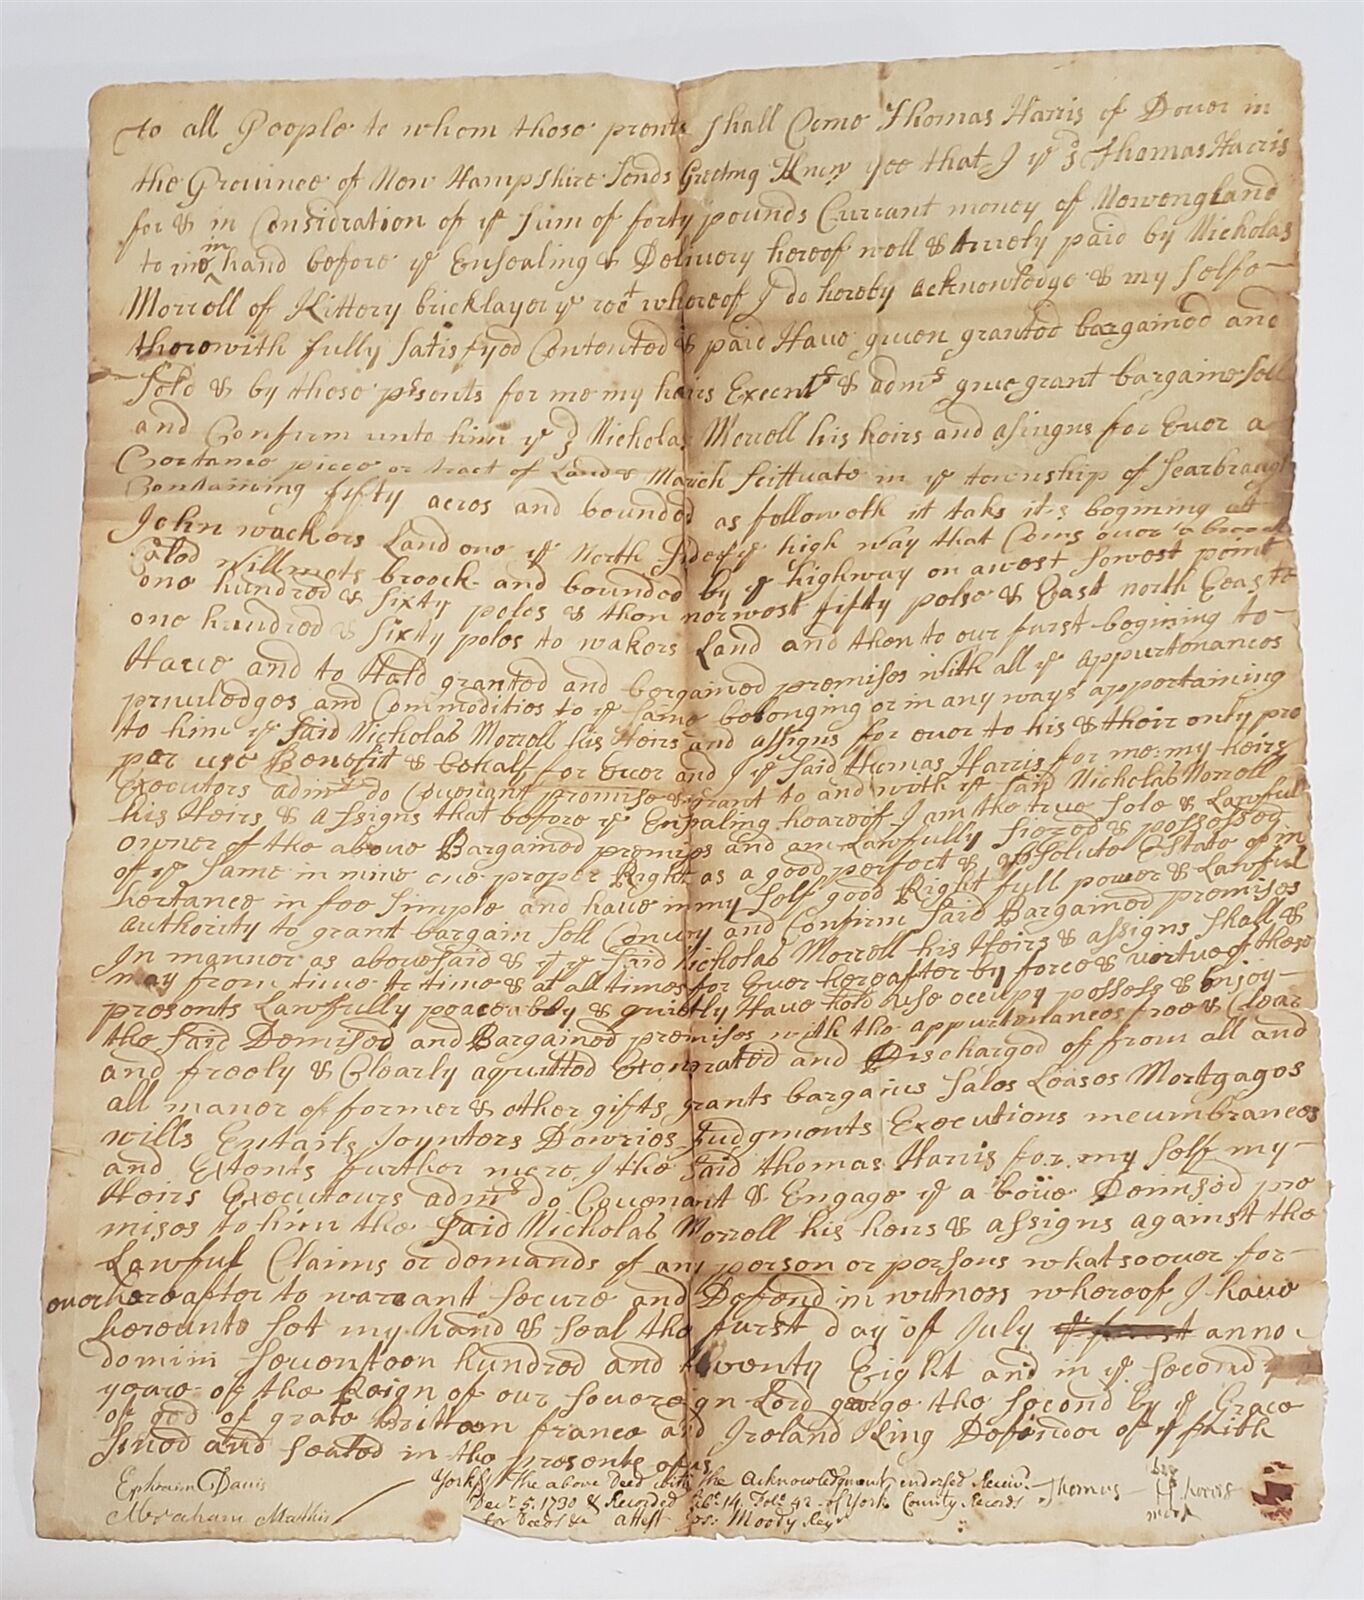 to all People to whom those prents shall Come Thomas Harris of Dover in
the Prouince of New Hampshire sends Greeting Know yee that I ye sd Thomas Harris
for & in Considration of ye sum of forty pounds Currant money of Newengland
to me in hand before ye Ensealing & Delivery hereof well & truely paid by Nicholas
Morrell of Kittery bricklayer ye rect whereof I do hereby acknowledge & my selfe
therewith fully satisfyed Contented & paid Haue giuen granted bargained and
sold & by these presents for me my heirs Execrs & admrs giue grant bargaine sell
and Confirm unto him ye sd Nicholas Morrell his heirs and asingns for Euer a
Certaine piece or tract of Land & Marsh scittuate in ye township of Scarbrough
Containing fifty acres and bounded as followeth it taks its begining att
John wackers Land one ye North side of ye high way that Coms ouer a broock
Caled Willmots broock and bounded by ye highway on a west sowest point
one hundred & sixty poles & then norwest fifty polse & East north East
one hundred & sixty poles to wakers Land and then to our furst begining to
Haue and to Hald granted and bargained premises with all ye appurtenances
priuiledges and Commodities to ye same belonging or in any ways appertaining
to him ye said Nicholas Morrell his Heirs and assigns for euer to his & their only pro
per use Benefit & behalf for Euer and I ye said thomas Harris for me my heirs
Executors admrs do Couenant promise & grant to and with ye said Nicholas Morrell
his Heirs & assigns that before ye Ensealing heareof I am the true sole & Lawfull
owner of the aboue Bargained premises and am Lawfully siezed & possessed
of ye same in mine one proper Right as a good perfect & absolute Estate of in
hertance in fee simple and haue in my self good Right full power & Lawfull
authority to grant bargain sell Conuay and Confirm said Bargained premises
In mannor as abovesaid & yt ye said Nicholas Morrell his Heirs & assigns shall &
may from time to time & at all times for Euer hereafter by force & virtue of these
presents Lawfully peaceably & quietly Haue hold use occupy possess & Enjoy
the said Demised and Bargained premises with the appurtenances free & Clear
and freely & Clearly aquitted Exonerated and Discharged of from all and
all maner of former & other gifts grants bargains sales Leases Mortgages
wills Entails Joynters Dowries Judgments Executions incumbrances
and Extents further more I the said thomas Harris for my self my
Heirs Executours admrs do Couenant & Engage ye aboue Demised pre
mises to him the said Nicholas Morrell his heirs & assigns against the
Lawful Claims or demands of any person or persons whatsoeuer for
euer hereafter to warant secure and Defend in witness whereof I haue
hereunto set my hand & seal the furst day of July anno
domini seuenteen hundred and twenty Eight and in ye second
yeare of the Reign of our souereign Lord george the second by ye Grace
of god of grate Brittaen france and Ireland King Defender of ye faith
sined and sealed in the presents of us
Ephraim Davis
Abraham Mathis
Yorkss The above Deed with the Acknowledgment endorsed Receivd
Decr 5. 1730 & Recorded Libo 14, Folo 42 of York County Records
for Deeds &c attest Jos: Moody Regr
Thomas Harris
his
mark